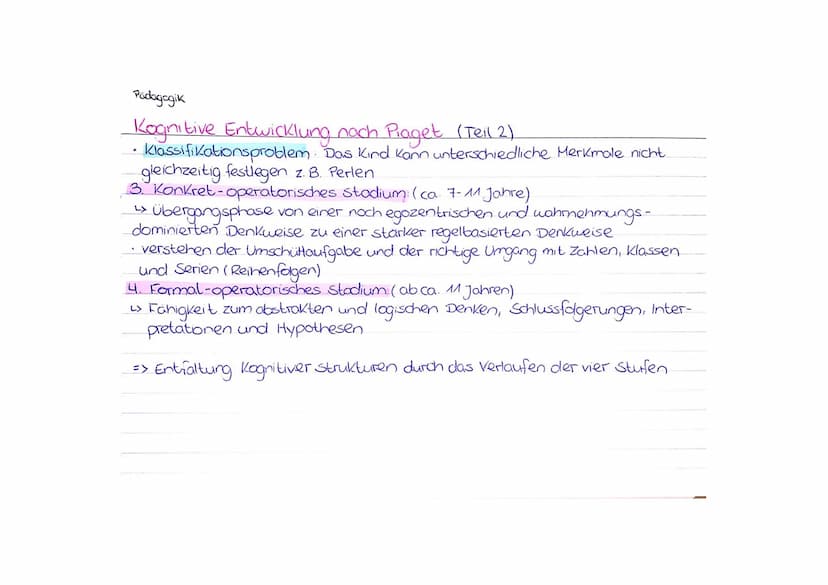 Pädagogik
Kognitive Entwicklung nach Piaget (Teil 2)
· Klassifikationsproblem: Das Kind kann unterschiedliche Merkmale nicht
gleichzeitig festlegen z.B. Perlen
3. Konkret-operatorisches Stadium: (ca. 7-11 Jahre)
↳ Übergangsphase von einer noch egozentrischen und wahrnehmungs-
dominierten Denkweise zu einer stärker regelbasierten Denkweise
· verstehen der Umschüttaufgabe und der richtige Umgang mit Zahlen, Klassen
und Serien (Reihenfolgen)
4. Formal-operatorisches Stadium: (ab ca. 11 Jahren)
↳ Fähigkeit zum abstrakten und logischen Denken, Schlussfolgerungen, Inter-
pretationen und Hypothesen
=> Entfaltung kognitiver Strukturen durch das Verlaufen der vier Stufen